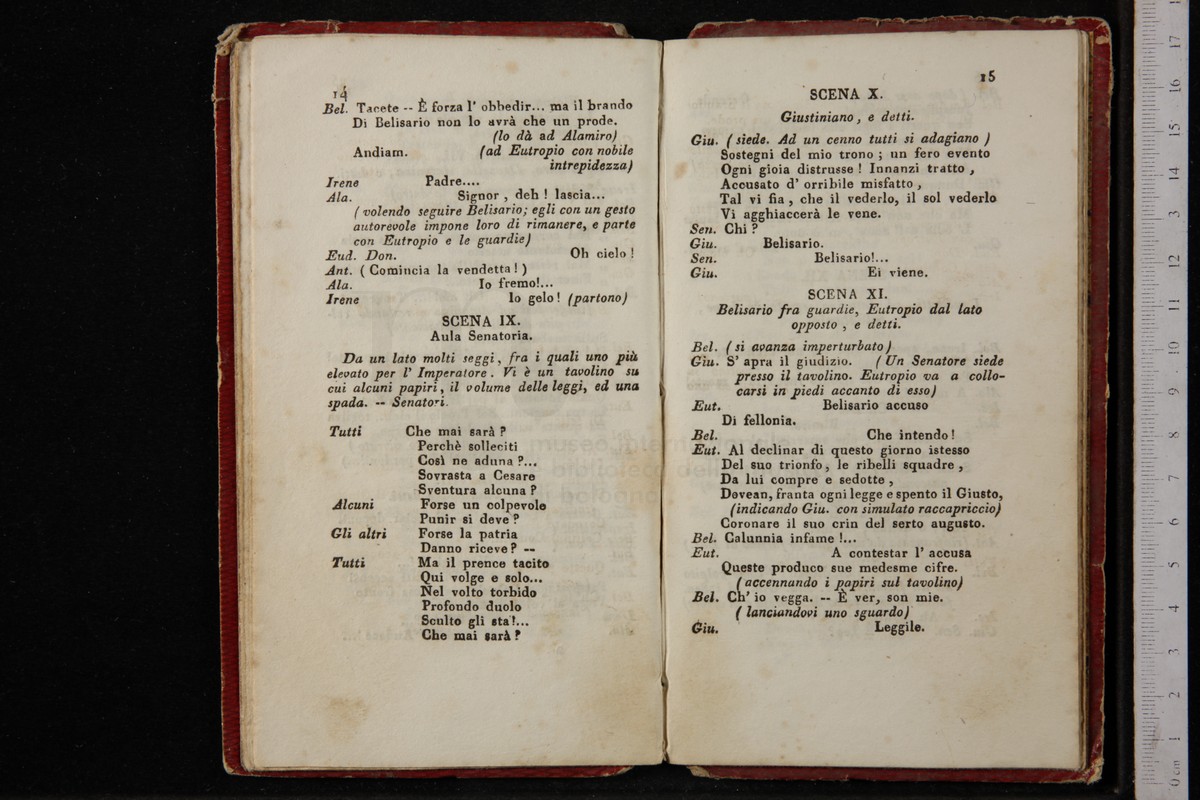 14
Bel. Tacete -- È forza l' obbedir... ma il brando
Di Belisario non lo avrà che un prode.
(lo dà ad Alamiro)
Andiam. (ad Eutropio con nobile
intrepidezza)
Irene Padre....
Ala. Signor, deh! lascia...
(volendo seguire Belisario; egli con un gesto
autorevole impone loro di rimanere, e parte
con Eutropio e le guardie)
Eud. Don. Oh cielo!
Ant. (Comincia la vendetta!)
Ala. Io fremo!...
Irene Io gelo! (partono)
SCENA IX.
Aula Senatoria.
Da un lato molti seggi, fra i quali uno più
elevato per l' Imperatore. Vi è un tavolino su
cui alcuni papiri, il volume delle leggi, ed una
spada. -- Senatori.
Tutti Che mai sarà?
Perchè solleciti
Così ne aduna?...
Sovrasta a Cesare
Sventura alcuna?
Alcuni Forse un colpevole
Punir si deve?
Gli altri Forse la patria
Danno riceve? --
Tutti Ma il prence tacito
Qui volge e solo...
Nel volto torbido
Profondo duolo
Sculto gli sta!...
Che mai sarà?
15
SCENA X.
Giustiniano, e detti.
Giu. (siede. Ad un cenno tutti si adagiano)
Sostegni del mio trono; un fero evento
Ogni gioia distrusse! Innanzi tratto,
Accusato d' orribile misfatto,
Tal vi fia, che il vederlo, il sol vederlo
Vi agghiaccerà le vene.
Sen. Chi?
Giu. Belisario.
Sen. Belisario!...
Giu. Ei viene.
SCENA XI.
Belisario fra guardie, Eutropio dal lato
opposto, e detti.
Bel. (si avanza imperturbato)
Giu. S' apra il giudizio. (Un Senatore siede
presso il tavolino. Eutropio va a collo-
carsi in piedi accanto di esso)
Eut. Belisario accuso
Di fellonia.
Bel. Che intendo!
Eut. Al declinar di questo giorno istesso
Del suo trionfo, le ribelli squadre,
Da lui compre e sedotte,
Dovean, franta ogni legge e spento il Giusto,
(indicando Giu. con simulato raccapriccio)
Coronare il suo crin del serto augusto.
Bel. Calunnia infame!...
Eut. A contestar l' accusa
Queste produco sue medesme cifre.
(accennando i papiri sul tavolino)
Bel. Ch' io vegga. -- È ver, son mie.
(lanciandovi uno sguardo)
Giu. Leggile.